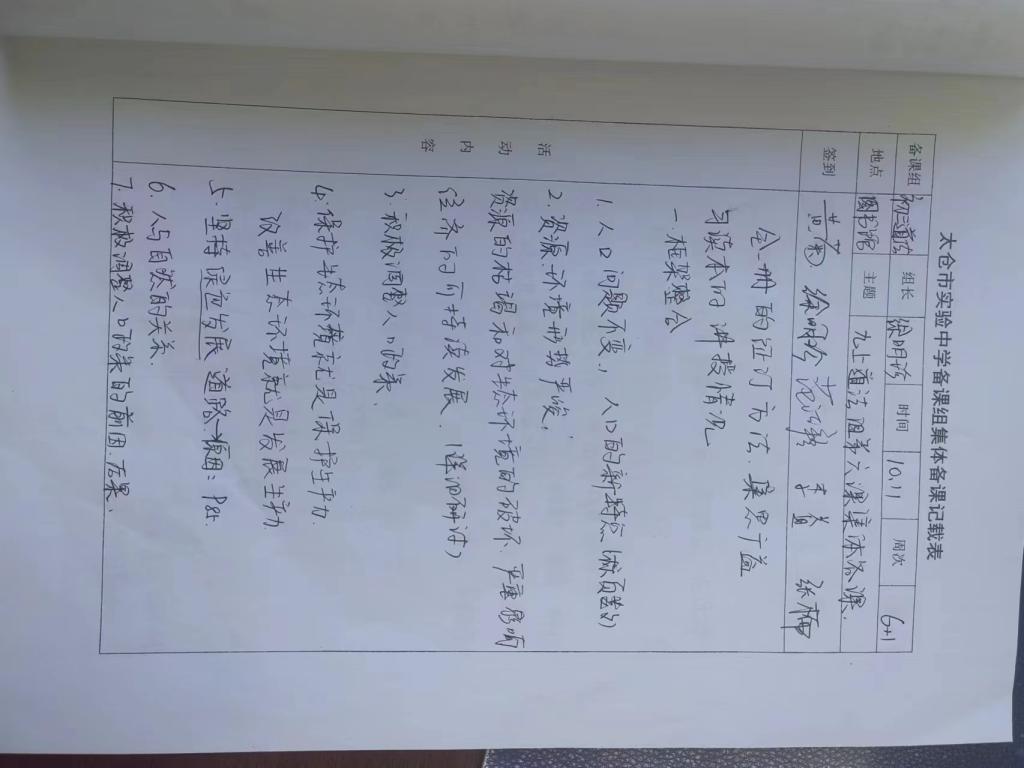 太仓市实验中学备课组集体备课记载表
备课组 初三道法 组长 徐明珍 时间 10.11 周次 6+1
地点 图书馆 主题 九上道法 第六课集体备课.
签到 徐明珍 李 张梅
活动内容
全一册的征订方法.集思广益
与读本的讲授情况
一.框架整合
1.人口问题不变,人口的新特点(除负盖的)
2.资源.环境形势严峻;
资源的枯竭和对生态环境的破坏.严重影响
经济的可持续发展.
3.积极调整人口政策.
4.保护生态环境就是保护生产力.
改善生态环境就是发展生产力
5.坚持绿色发展道路→原因:P85.
6.人与自然的关系.
7.积极调整人口政策的前因.后果.